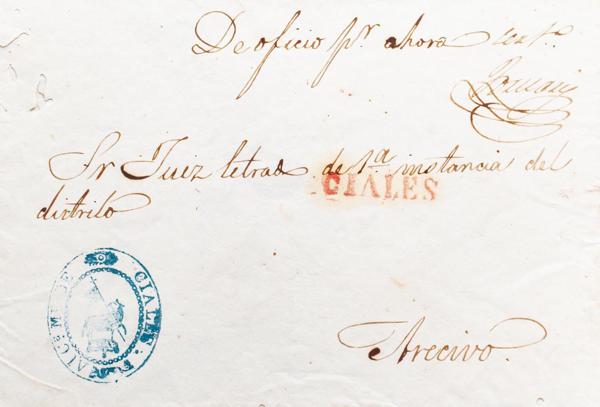 De oficio pr. ahora
Sr Juez letrado de 1.a instancia del
distrito
CIALES
CIALES
Arecivo.